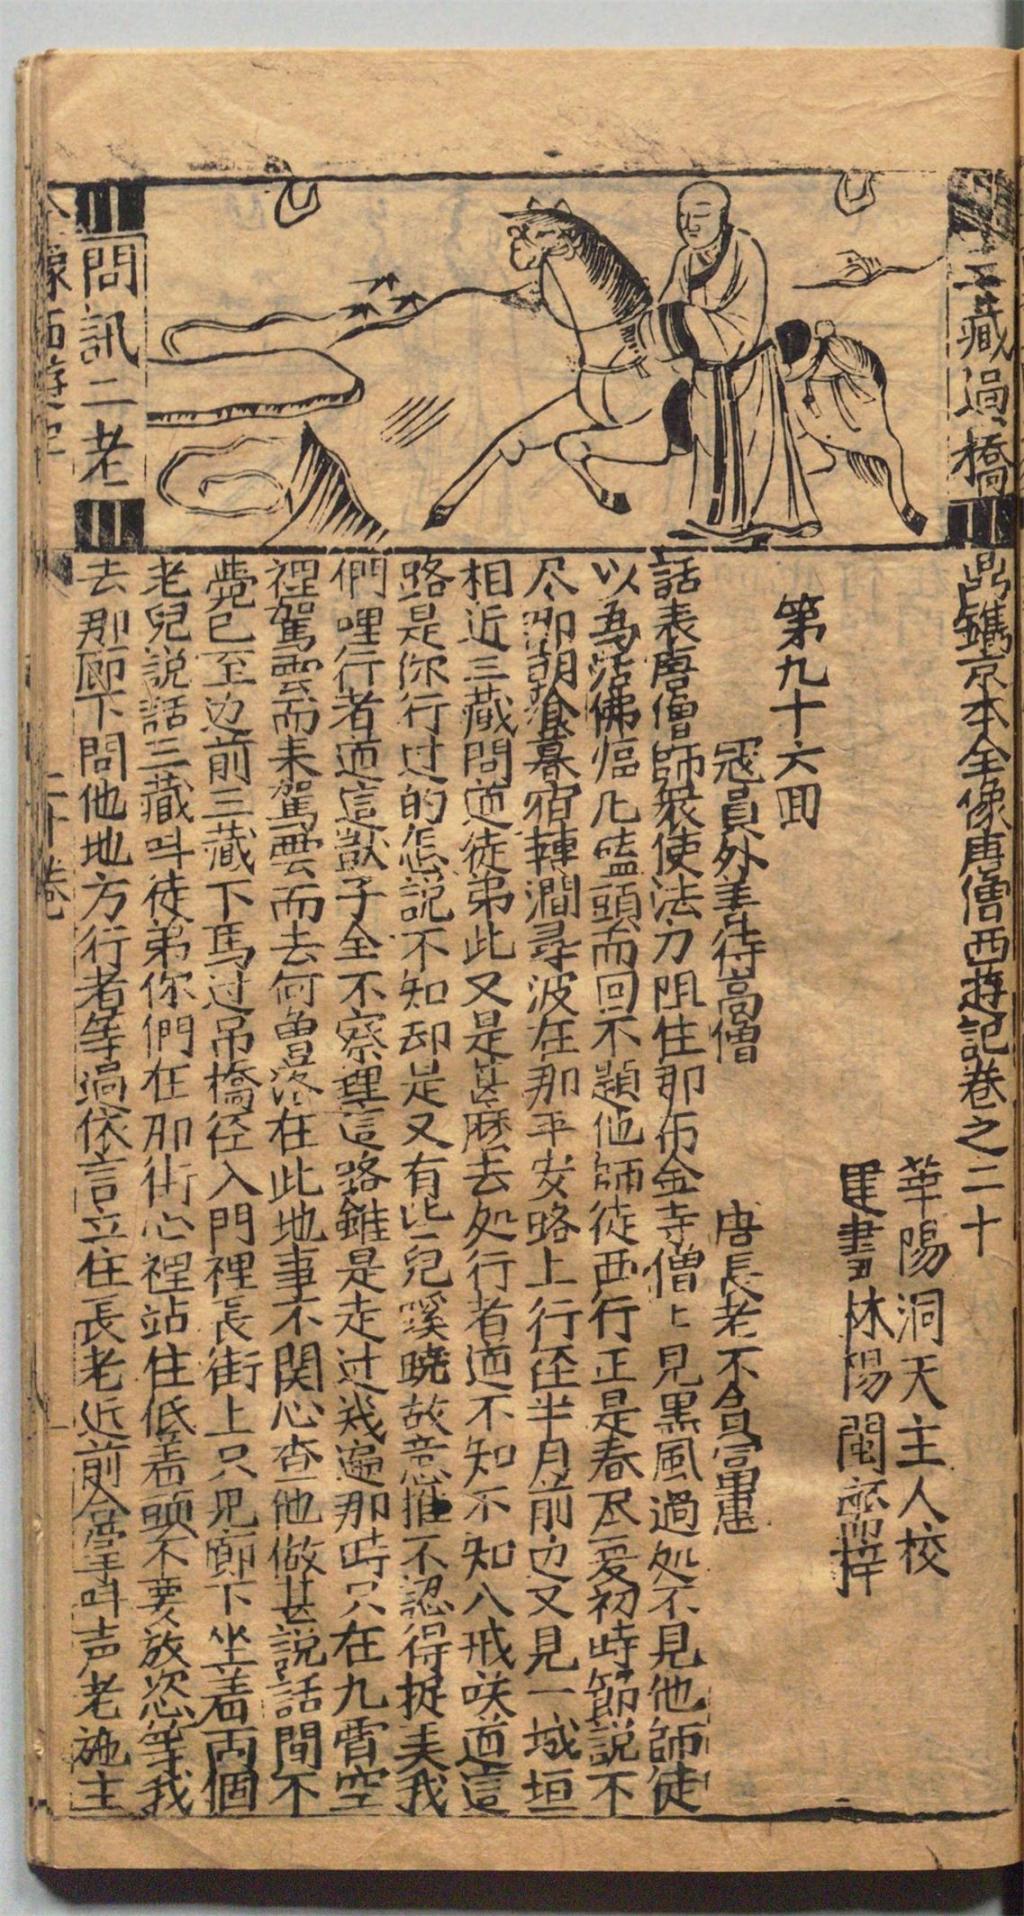 三藏過橋
問訊二老
鼎鐫京本全像唐僧西遊記卷之二十
華陽洞天主人校
書林陽閩齋梓
第九十六回
冠員外善待高僧
唐長老不貪富惠
話表唐僧師衆使法力阻住那布金寺僧僧見黑風過処不見他師徒
以為活佛臨凡磕頭而回不題他師徒西行正是春尽夏初時節說不
尽那朝飡暮宿轉澗尋波在那平安路上行經半月前边又見一城垣
相近三藏問道徒弟此又是甚麼去処行者道不知不知八戒咲道這
路是你行过的怎說不知却是又有些兒蹊曉故意推不認得捉美我
們哩行者道這獃子全不察理這路雖是走过幾遍那時只在九霄空
裡駕雲而来駕雲而去何曾落在此地事不関心查他做甚說話間不
覺已至边前三藏下馬过吊橋徑入門裡長街上只見廊下坐着両個
老兒說話三藏叫徒弟你們在那街心裡站住低着頭不要放恣等我
去那廊下問他地方行者等過依言立住長老近前合掌叫声老施主
全像西遊記
二十卷
一